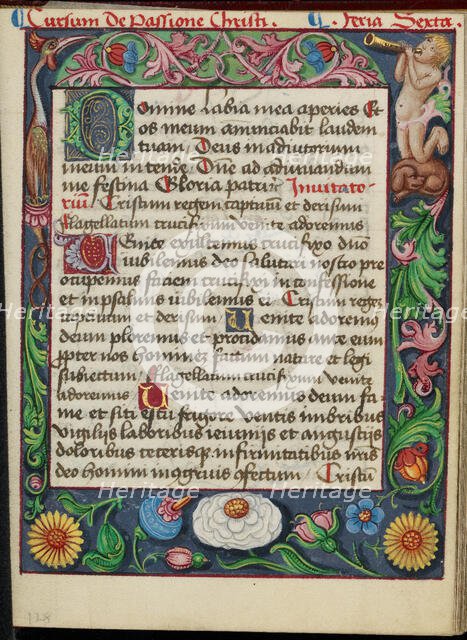 Cursum De Passione Christi. Feria Sexta.
Domine labia mea aperies Et
os meum annunciabit laudem
tuam Deus in adiutorium
meum intende Dne ad adiuvandum
me festina Gloria patri Invitato-
riu Cristum regem captum et derisum
flagellatum crucifixum venite adoremus
Venite exultemus crucifixo duo
iubilemus deo salutari nostro pre
ocupemus faciem crucifixi in confessione
et in psalmis iubilemus ei Cristum regem
captum et derisum Venite adoremus
deum ploremus et procidamus ante eum
propter nos hominez factum nature et legi
subiectum flagellatum crucifixum venite
adoremus Venite adoremus deum fa-
me et siti estu frigore ventis imbribus
vigiliis laboribus ieiuniis et angustijs
doloribus ceterisque infirmitatibus nris
deo hominem confectum Cristu
Heritage
Heritage
Heritage
Heritage
Heritage
Heritage
C
128